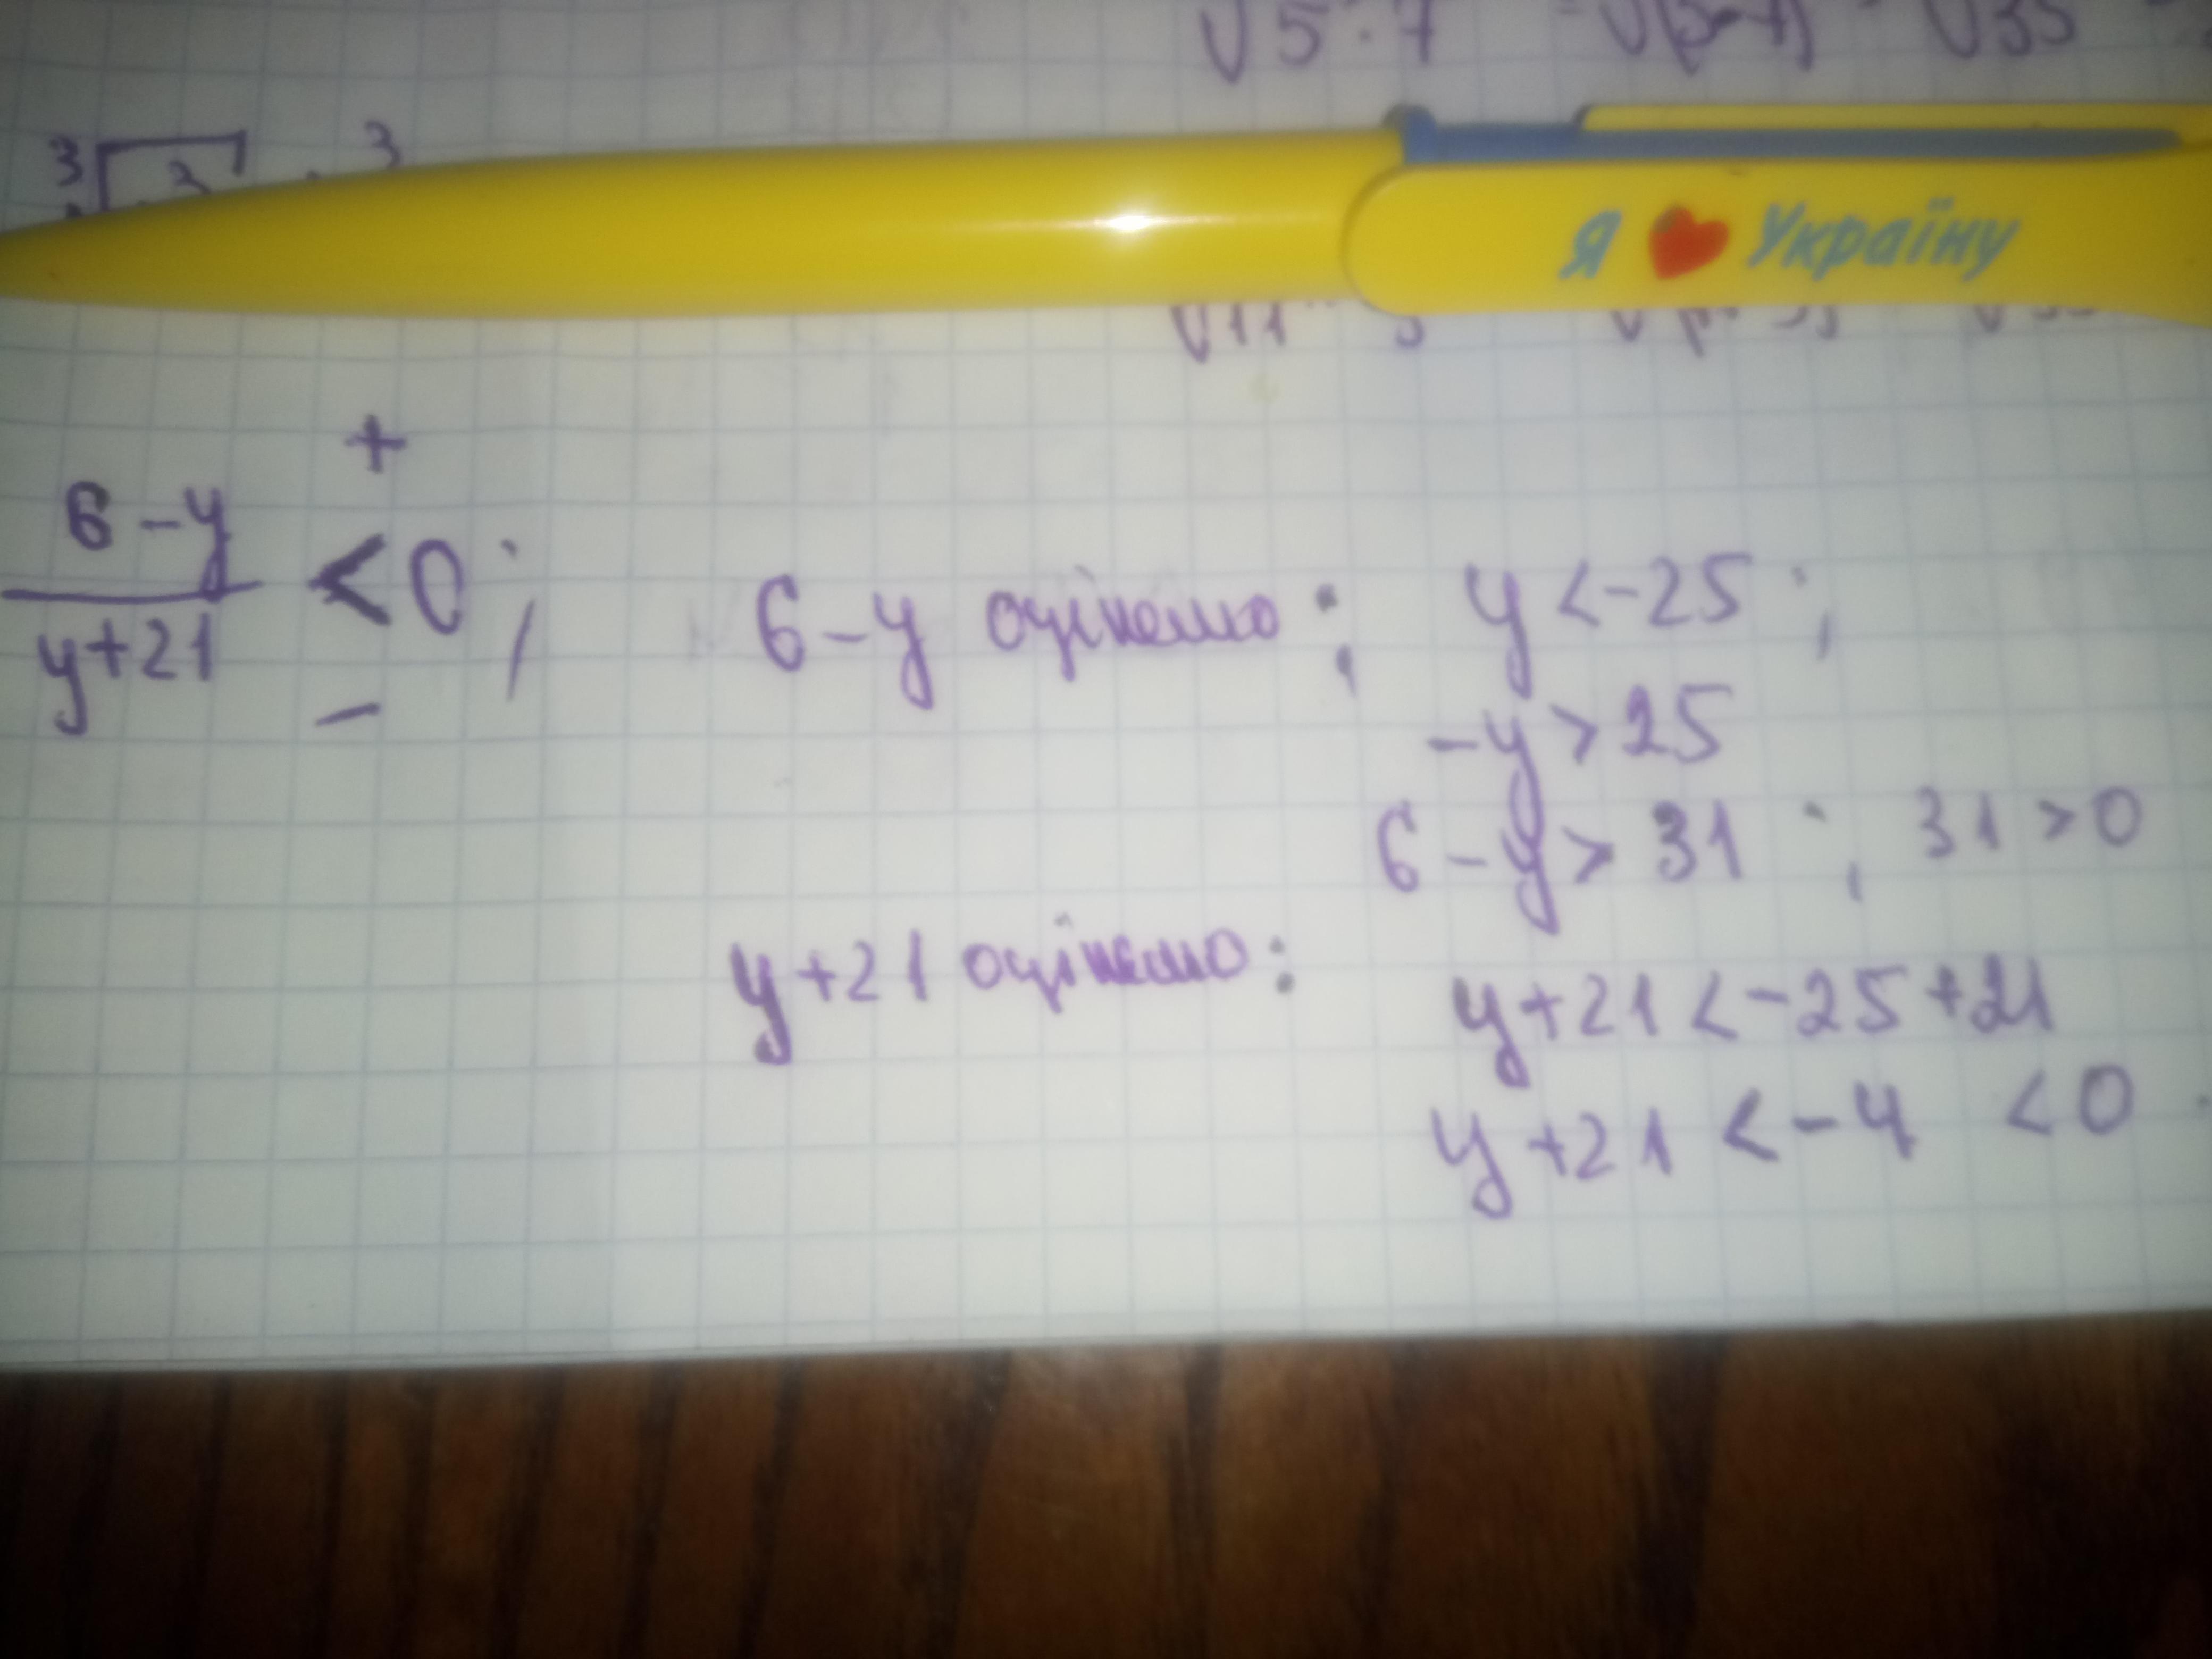 √5 · 7 √35
3 3 3
Я ❤ Україну
√11
+
6-y
—— < 0;
y+21
−
6-y оцінемо: y < -25;
-y > 25
6-y > 31 ; 31 > 0
y+21 оцінемо: y+21 < -25+21
y+21 < -4 < 0